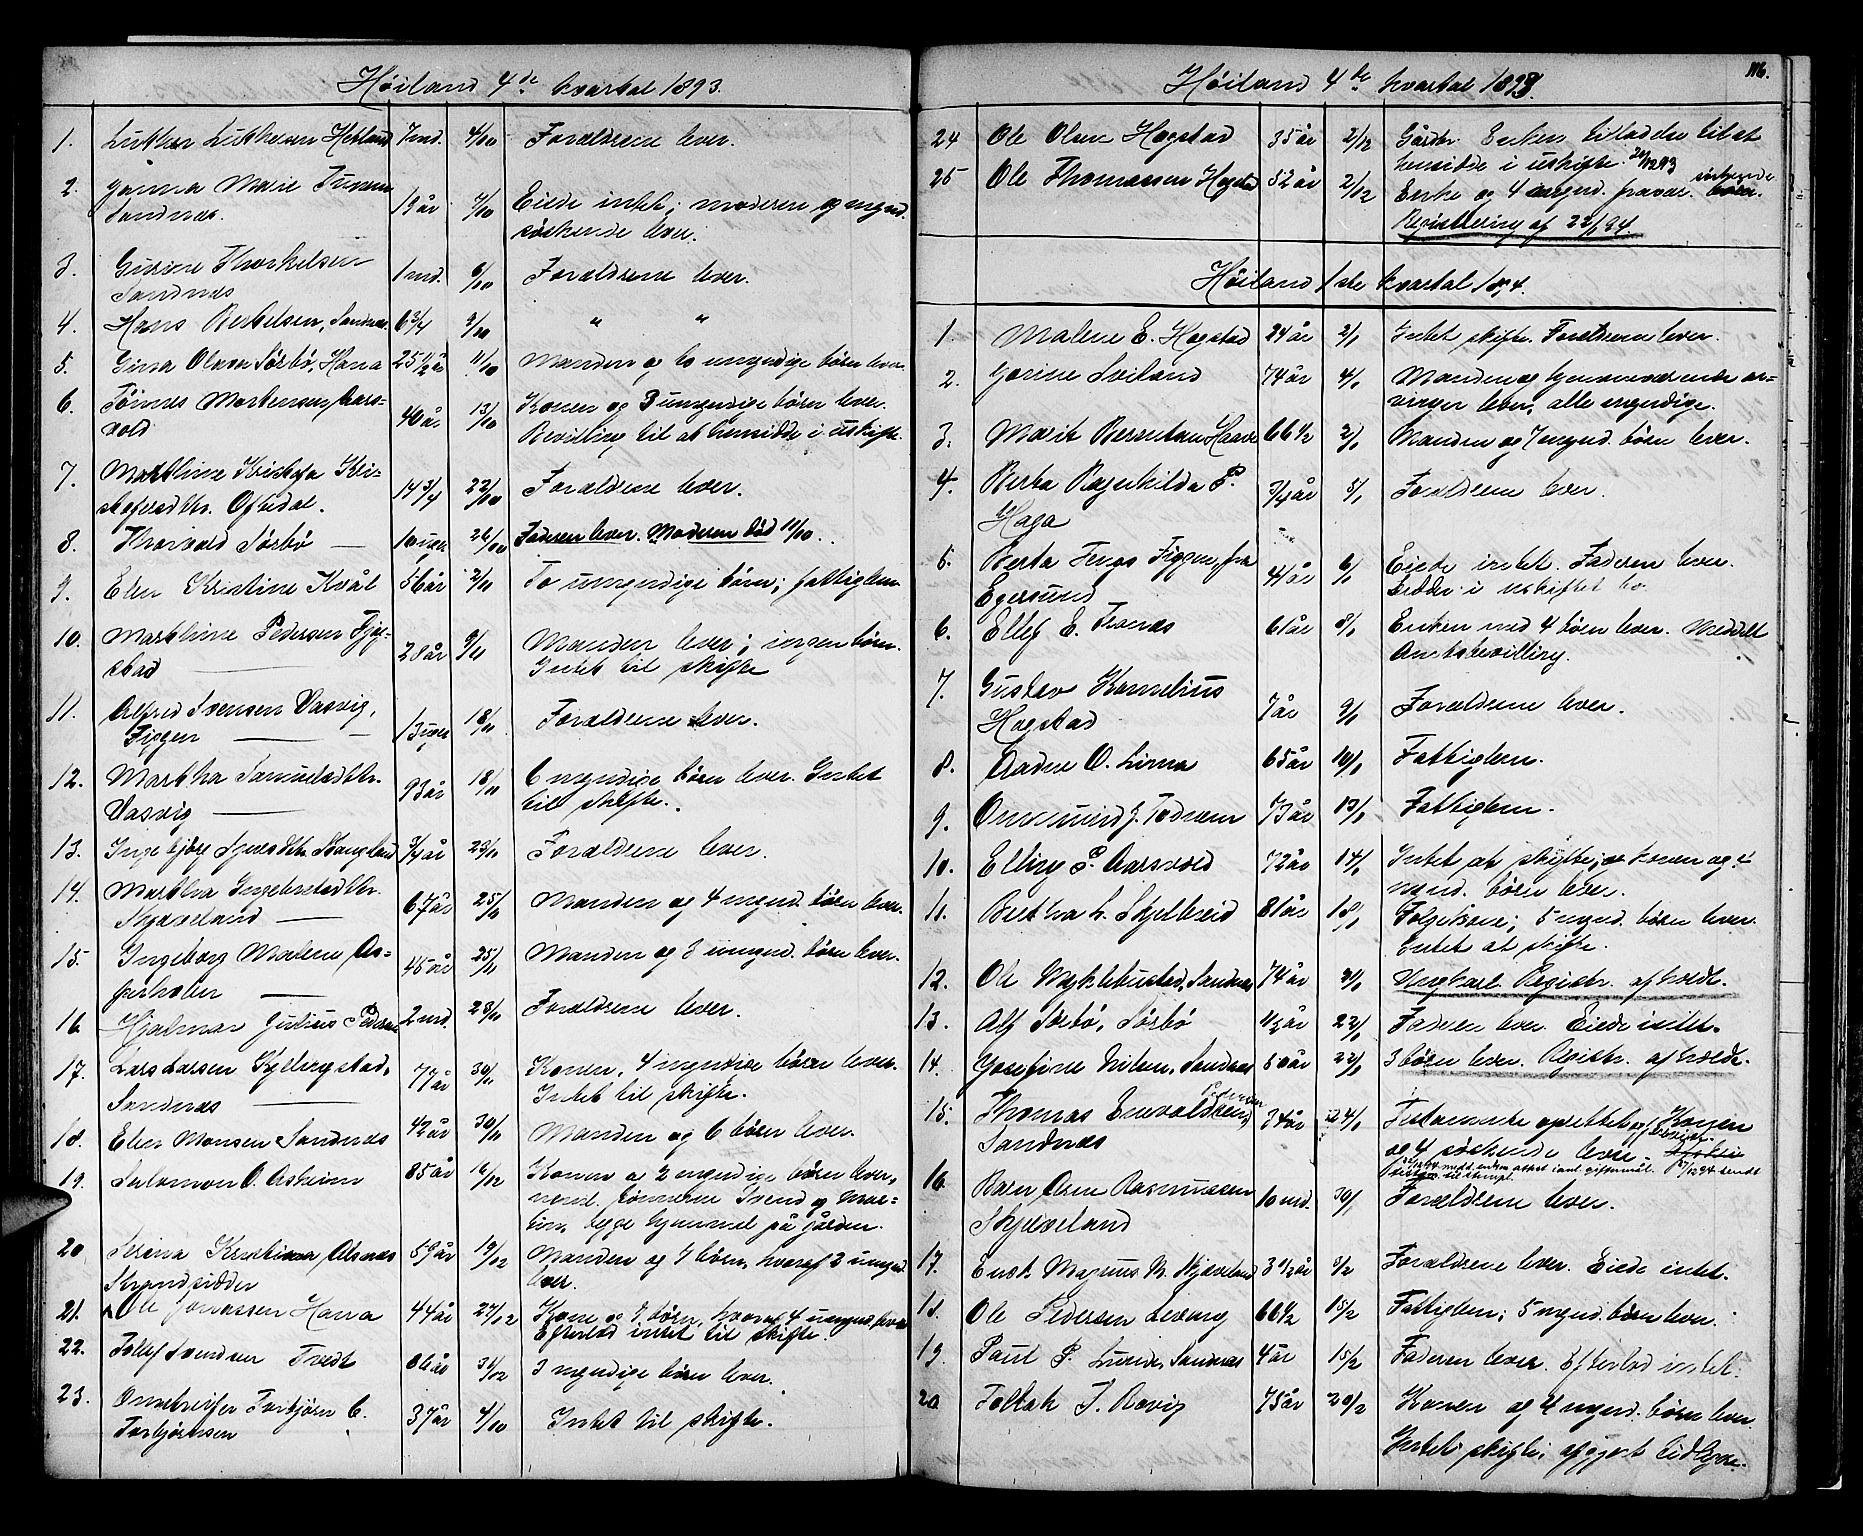 Høiland 4de kvartal 1893.
1. Luther Luthersen Hetland 7 md. 4/10 Forældrene lever.
2. Marie
Sandnæs. 19 år 4/10 Eiede intet; moderen og mynd.
søskende lever.
3. Gurine Thorkelsen
Sandnæs 1 md. 6/10 Forældrene lever.
4. Hans Berkelsen, Sandnæs. 6 3/4 9/10 " "
5. Gina Olava Sørbø, Hana 25 1/2 år 11/10 Manden og to umyndige børn lever.
6. Tønnes Mortensen Aars-
vold 40 år 13/10 Konen og 3 umyndige børn lever.
Bevilling til at hensidde i uskifte.
7. Marthine Kristofa Kri-
stofersdtr. Oftedal. 14 3/4 22/10 Forældrene lever.
8. Thorvald Sørbø — 10 uger 26/10 Faderen lever. Moderen død 11/10.
9. Elen Kristine Kvål 56 år 2/11 To umyndige børn; fattiglem
10. Marthine Pedersen Fjog-
stad — 28 år 9/11 Manden lever; ingen børn.
Intet til skifte
11. Alfred Svensen Vasvig,
Figgen — 13 uger 18/11 Forældrene lever.
12. Martha Samuelsdtr.
Vasvig — 93 år 18/11 6 myndige børn lever. Intet
til skifte.
13. Ingebjørg Stangeland 3/4 år 23/10 Forældrene lever.
14. Martha Ingebretsdtr.
Skjæveland — 67 år 25/11 Manden og 4 mynd. børn lever.
15. Ingeborg Malene As-
perholen — 45 år 25/11 Manden og 3 umynd. børn lever.
16. Hjalmar Julius Pedersen 2 md. 23/11 Forældrene lever.
17. Lars Larsen Kyllingstad,
Sandnæs — 77 år 30/11 Konen, 4 myndige børn lever.
Intet til skifte.
18. Elen Monsen Sandnæs 42 år 30/11 Manden og 6 børn lever.
19. Salomon O. Asheim 85 år 16/12 Konen og 2 myndige børn lever,
neml. sønnerne Svend og Mor-
tin, begge hjemmel på gården.
20 Serina Kristina Alsnæs
Strandsidden 59 år 19/12 Manden og 7 børn, hvoraf 2 umynd.
lever.
21. Ole Jonassen Hana 44 år 27/12 Kone og 7 børn, hvoraf 4 umynd. lever
Efterlod intet til skifte.
22. Tollef Svendsen Tvedt 86 år 31/12 3 myndige børn lever.
23. Omstreifer Torbjørn C.
Torbjørnsen 37 år 4/10 Intet til skifte.
Høiland 4de kvartal 1893. 116.
24 Ole Olsen Hogstad 35 år 2/12 Gårdbr. Enken tilladelse til at
hensidde i uskifte. 20/12 93
25 Ole Thomassen Hogstad 52 år 2/12 Enke og 4 umynd. fravær. børn.
Registrering af 22/1 94.
Høiland 1ste kvartal 1894.
1. Malene E. Hogstad 24 år 2/1 Intet skifte. Forældrene lever.
2. Gorine Sviland 74 år 4/1 Manden og hjemmeværende ar-
vinger lever, alle myndige.
3. Marit Berntsen Haave 66 1/2 2/1 Manden og 7 mynd. børn lever.
4. Berta Ragnhilda P.
Haga 3/4 år 5/1 Forældrene lever.
5. Berta Figgen, fra
Egersund 44 år 6/1 Eiede intet. Faderen lever.
Sidder i uskiftet bo.
6. Ellef E. Tronæs 61 år 8/1 Enken med 4 børn lever. Meddelt
Amtsbevilling.
7. Gustav Kornelius
Hogstad 7 år 9/1 Forældrene lever.
8. Aadne O. Lima 65 år 10/1 Fattiglem.
9. Ommund J. Todnem 73 år 13/1 Fattiglem.
10. Elling P. Aarsvold 72 år 14/1 Intet at skifte; konen og 4
mynd. børn lever.
11. Bertha L. Skjelbreid 81 år 18/1 Følgekone; 5 mynd. børn lever.
Intet at skifte.
12. Ole Myklebustad, Sandnæs 74 år 21/1 Ungkarl. Registr. afholdt.
13. Alf Sørbø, Sørbø 4 1/2 år 22/1 Faderen lever. Eiede intet.
14. Josefine Nilsen, Sandnæs 50 år 22/1 3 børn lever. Registr. afholdt.
15. Thomas Enevoldsen,
Sandnæs 34 år 24/1 Testamente oprettet af Konen
og 4 søskende lever.
16. Olsen Rasmussen
Skjæveland 10 md. 30/1 Forældrene lever.
17. Enok Magnus M. Skjæveland 3 1/2 år 3/2 Forældrene lever. Eiede intet.
18. Ole Pedersen Levang 66 1/2 15/2 Fattiglem; 5 mynd. børn lever.
19. Paul P. Lunde, Sandnæs 4 år 15/2 Faderen lever. Efterlod intet.
20 Toltak T. Rovig 75 år 20/2 Konen og 4 mynd. børn lever.
Intet skifte; afgjort tidligere.